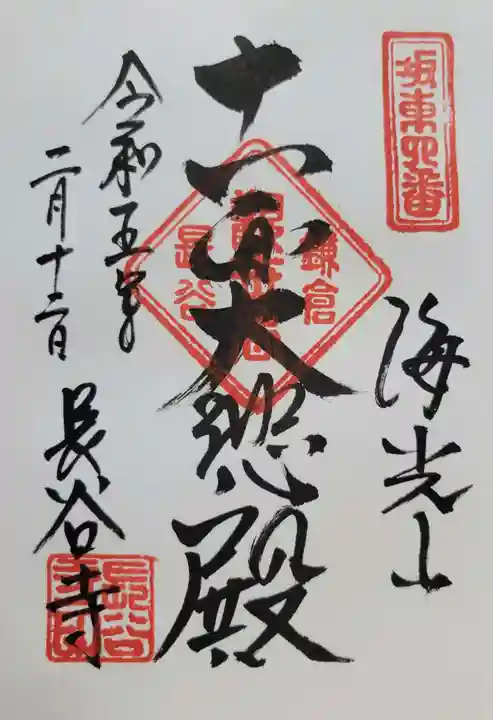 坂東四番
海光山
十一面大悲殿
鎌倉
長谷
令和五年
二月十二日
長谷寺